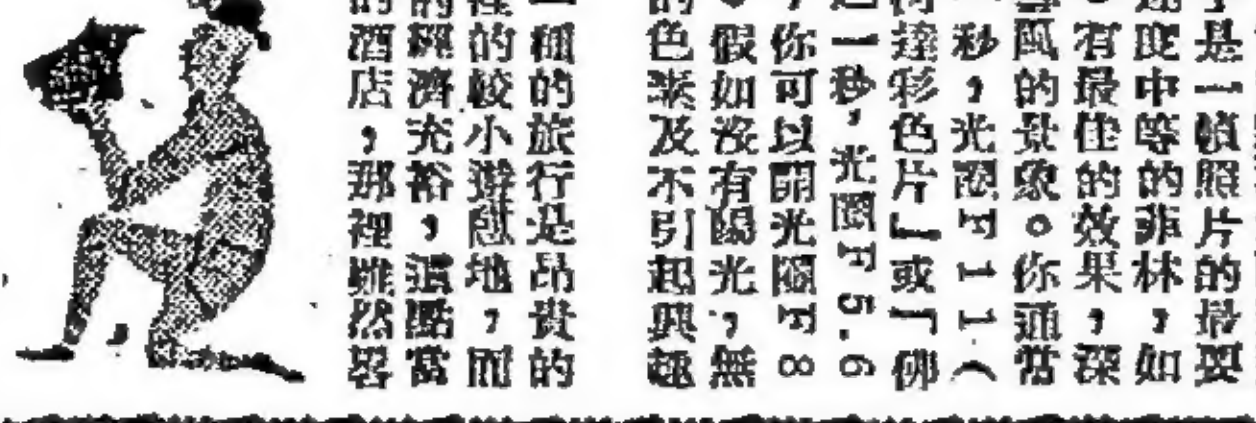 是一幀照片的最要
度中等的菲林,如
有最佳的效果,深
風的景象。你通常
秒,光圈F11(
達彩色片』或『佛
一秒,光圈F5.6
,你可以開光圈F8
。假如沒有陽光,無
色彩及不引起興趣
一種的旅行是昂貴的
的較小遊憩地,而
的經濟充裕,這點當
的酒店,那裡雖然畧